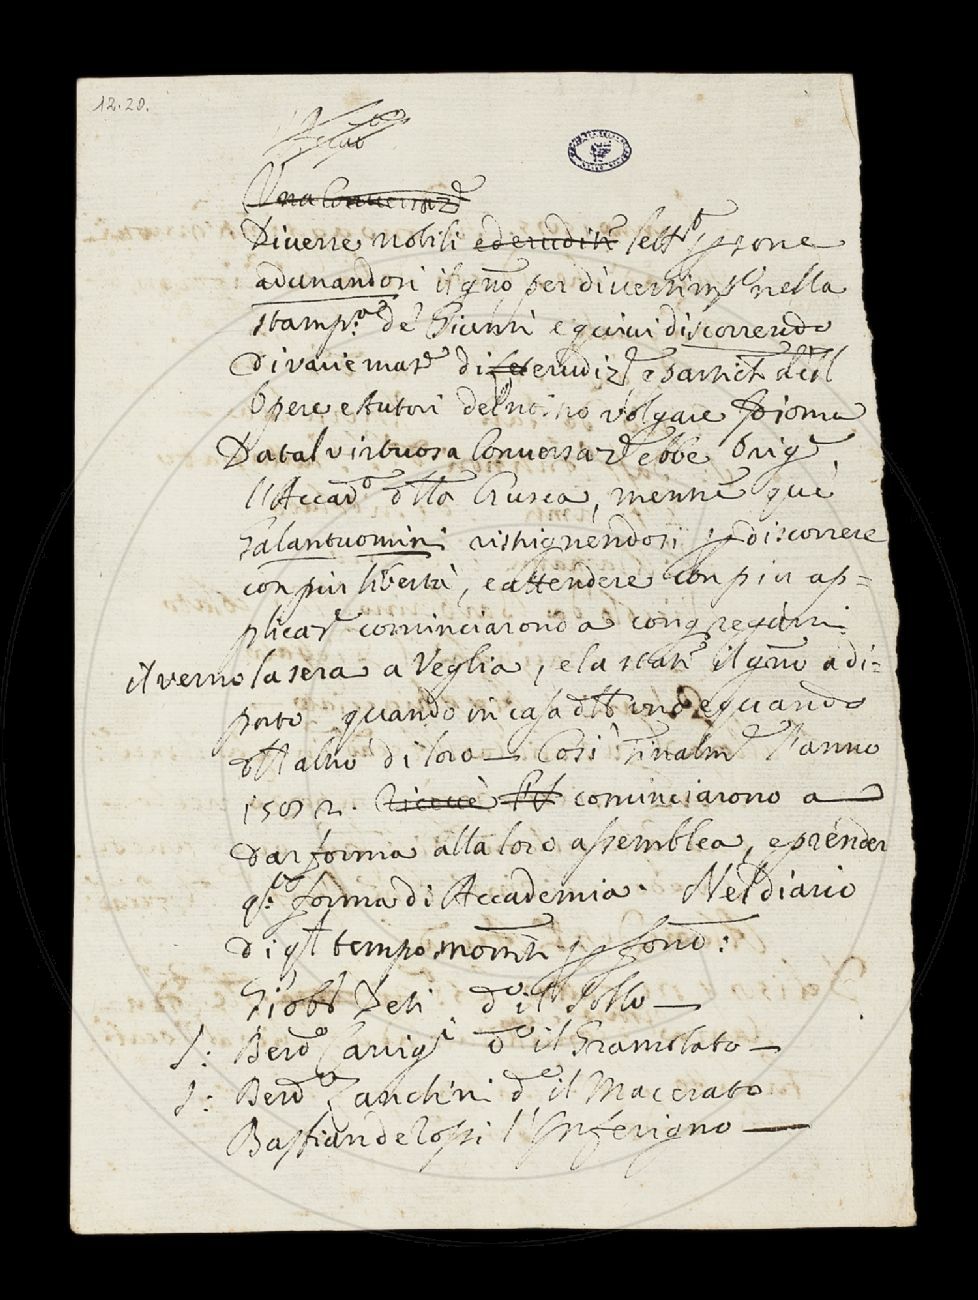 12.20.
Una Conversaz.e
Diverse nobili ed erudite lett.e psone
adunandosi il gno per divertimto nella
stamp.a de' Giunti e quivi discorrendo
di varie mat.e di erudiz.e e partic.te dell
Opere e Autori del nostro volgare Idioma
Da tal virtuosa Conversaz.e ebbe Orig.e
l'Accad.a dlla Crusca, mentre que'
Galantuomini ristrignendosi p discorrere
con più libertà, e attendere con più ap=
plicaz.e cominciarono a congregarsi
il verno la sera a Veglia, e la state il gno a di=
porto quando in casa dll'uno e quando
dll altro di loro — Così finalm.e l'anno
1582. cominciarono a
dar forma alla loro assemblea, e prender
q.a forma di Accademia. Nel diario
di ql tempo nominti p fond.i:
Gio Bt Deti d.o il Sollo —
S: Bern.o Canigi d.o il Gramolato —
S: Bern.o Zanchini d.o il Macerato
Bastian de Rossi l'Inferigno —